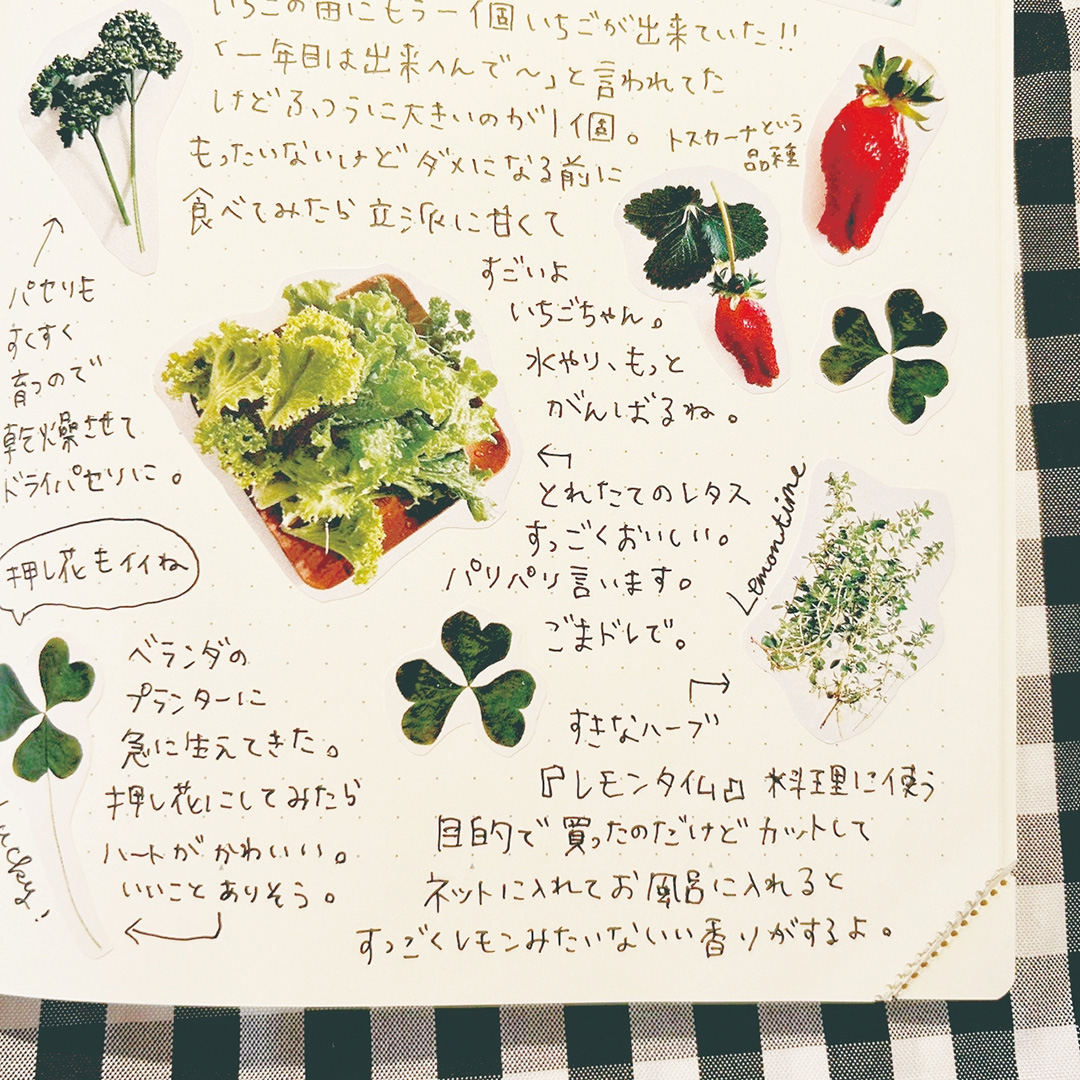 いちごの苗にもう一個いちごが出来ていた!!
「一年目は出来へんで〜」と言われてた
けどふつうに大きいのが1個。
もったいないけどダメになる前に
食べてみたら立派に甘くて
すごいよ
いちごちゃん。
水やり、もっと
がんばるね。
トスカーナという
品種
パセリも
すくすく
育つので
乾燥させて
ドライパセリに。
押し花もイイね
とれたてのレタス
すっごくおいしい。
パリパリ言います。
ごまドレで。
Lemontime
ベランダの
プランターに
急に生えてきた。
押し花にしてみたら
ハートがかわいい。
いいことありそう。
すきなハーブ
『レモンタイム』料理に使う
目的で買ったのだけどカットして
ネットに入れてお風呂に入れると
すっごくレモンみたいないい香りがするよ。